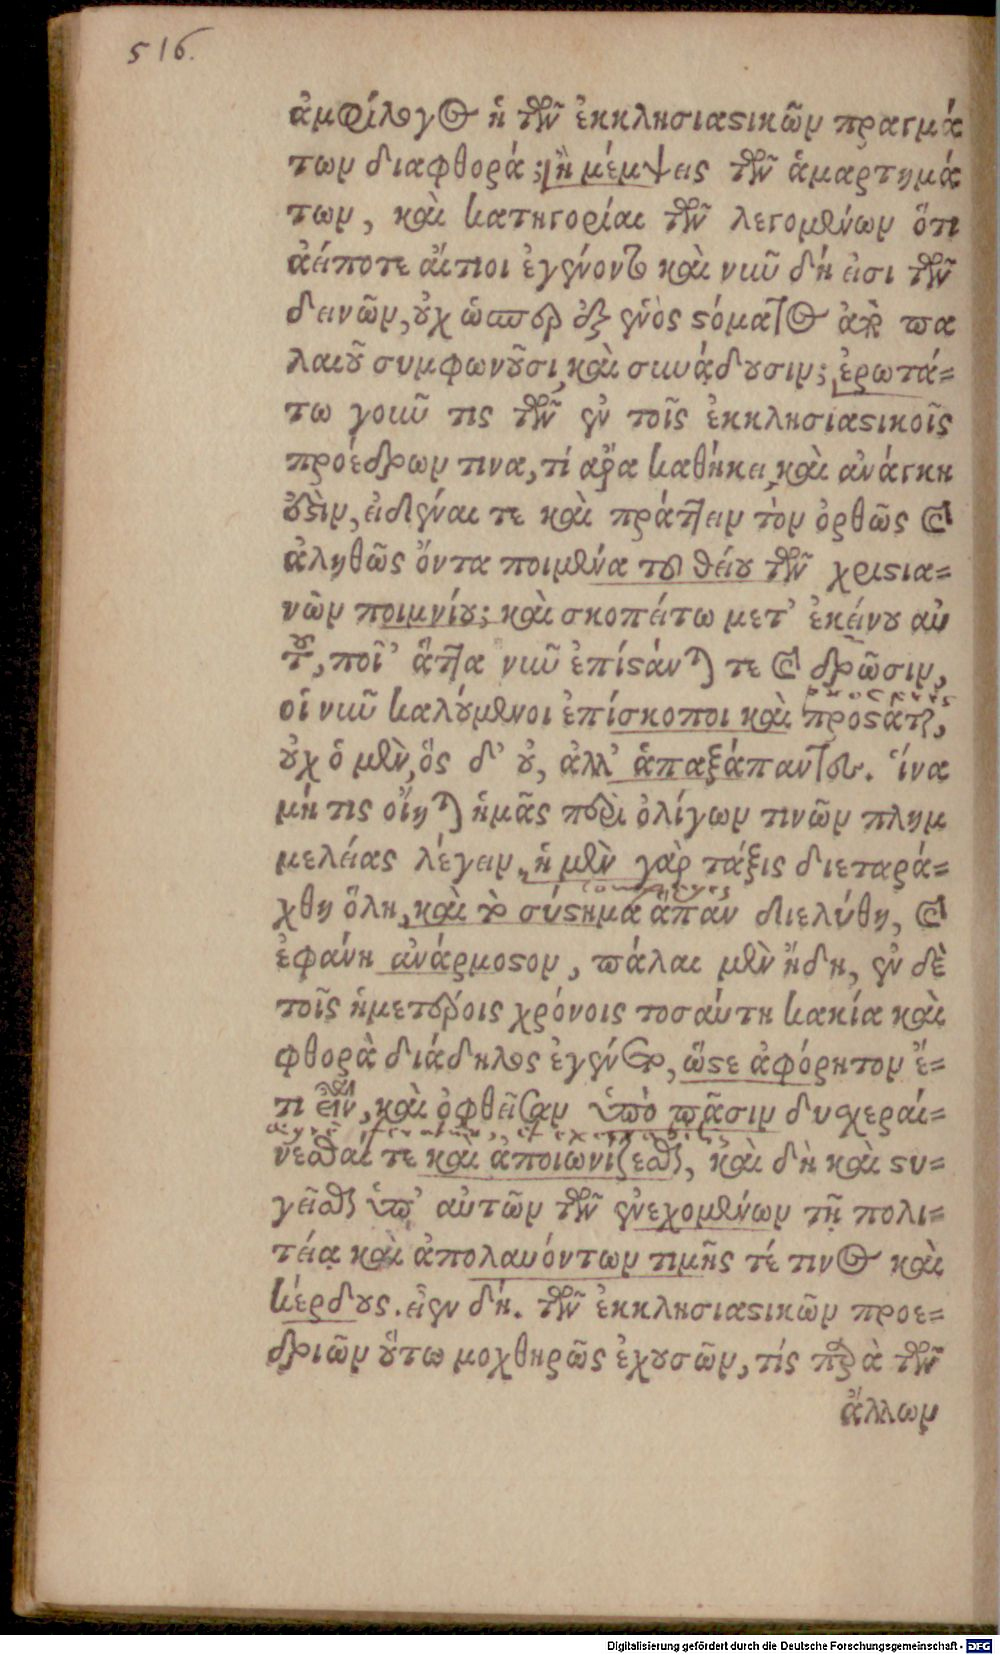 516.
ἀμφίλογος ἡ τῶν ἐκκλησιαστικῶν πραγμά
των διαφθορά; ἢ μέμψεις τῶν ἁμαρτημά
των, καὶ κατηγορίαι τῶν λεγομένων ὅτι
ἀείποτε αἴτιοι ἐγένοντο καὶ νῦν δή εἰσι τῶν
δεινῶν, οὐχ ὥσπερ ἐξ ἑνὸς στόματος ἀπὸ πα
λαιοῦ συμφωνοῦσι, καὶ συνᾴδουσιν; ἐρωτά-
τω γοῦν τις τῶν ἐν τοῖς ἐκκλησιαστικοῖς
προέδρων τινα, τί ἄρα καθήκει, καὶ ἀνάγκη
ἐστὶν, εἰδέναι τε καὶ πράττειν τὸν ὀρθῶς καὶ
ἀληθῶς ὄντα ποιμένα τοῦ θείου τῶν χριστια-
νῶν ποιμνίου; καὶ σκοπείτω μετ' ἐκείνου αὐ
τοῦ, ποῖ' ἄττα νῦν ἐπίστανται τε καὶ δρῶσιν,
οἱ νῦν καλούμενοι ἐπίσκοποι καὶ προστάται,
οὐχ ὁ μὲν, ὃς δ' οὐ, ἀλλ' ἁπαξάπαντες. ἵνα
μή τις οἴηται ἡμᾶς περὶ ὀλίγων τινῶν πλημ
μελείας λέγειν, ἡ μὲν γὰρ τάξις διεταρά-
χθη ὅλη, καὶ τὸ σύστημα ἅπαν διελύθη, καὶ
ἐφάνη ἀνάρμοστον, πάλαι μὲν ἤδη, ἐν δὲ
τοῖς ἡμετέροις χρόνοις τοσαύτη κακία καὶ
φθορὰ διάδηλος ἐγένετο, ὥστε ἀφόρητον ἔ-
τι εἶναι, καὶ ὀφθεῖσαν ὑπὸ πᾶσιν δυσχεραί-
νεσθαί τε καὶ ἀποιωνίζεσθαι, καὶ δὴ καὶ στυ-
γεῖσθαι ὑπ' αὐτῶν τῶν ἐνεχομένων τῇ πολι-
τείᾳ καὶ ἀπολαυόντων τιμῆς τέ τινος καὶ
κέρδους. εἶεν δή. τῶν ἐκκλησιαστικῶν προε-
δριῶν οὕτω μοχθηρῶς ἐχουσῶν, τίς παρὰ τῶν
ἄλλων
Digitalisierung gefördert durch die Deutsche Forschungsgemeinschaft - DFG